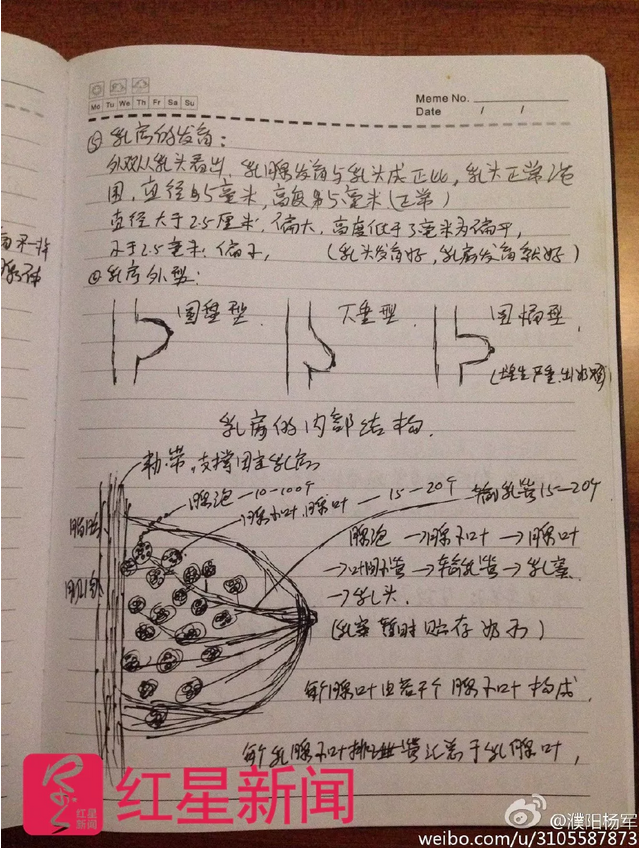 Meme No.
Mo Tu We Th Fr Sa Su
Date / /
⑤ 乳房的发育:
外观从乳头看出, 乳腺发育与乳头成正比, 乳头正常范
围, 直径 5毫米, 高度 5毫米(正常)
直径大于2.5厘米, 偏大, 高度低于3毫米为偏平,
小于2.5毫米, 偏小, (乳头发育好, 乳房发育就好)
乳房外型:
圆盘型
下垂型
圆桶型
乳房的内部结构.
韧带, 支撑固定乳房
腺泡—10-100个
腺小叶 腺叶 — 15-20个
输乳管15-20个
脂肪
胸肌
腺泡→腺小叶→腺叶
→叶间管→输乳管→乳窦
→乳头.
(乳窦暂时贮存奶汁)
每腺叶由若干个腺小叶构成.
每个乳腺小叶排 管汇总于乳腺叶,
红星新闻
红星
新闻
@濮阳杨军
weibo.com/u/3105587873